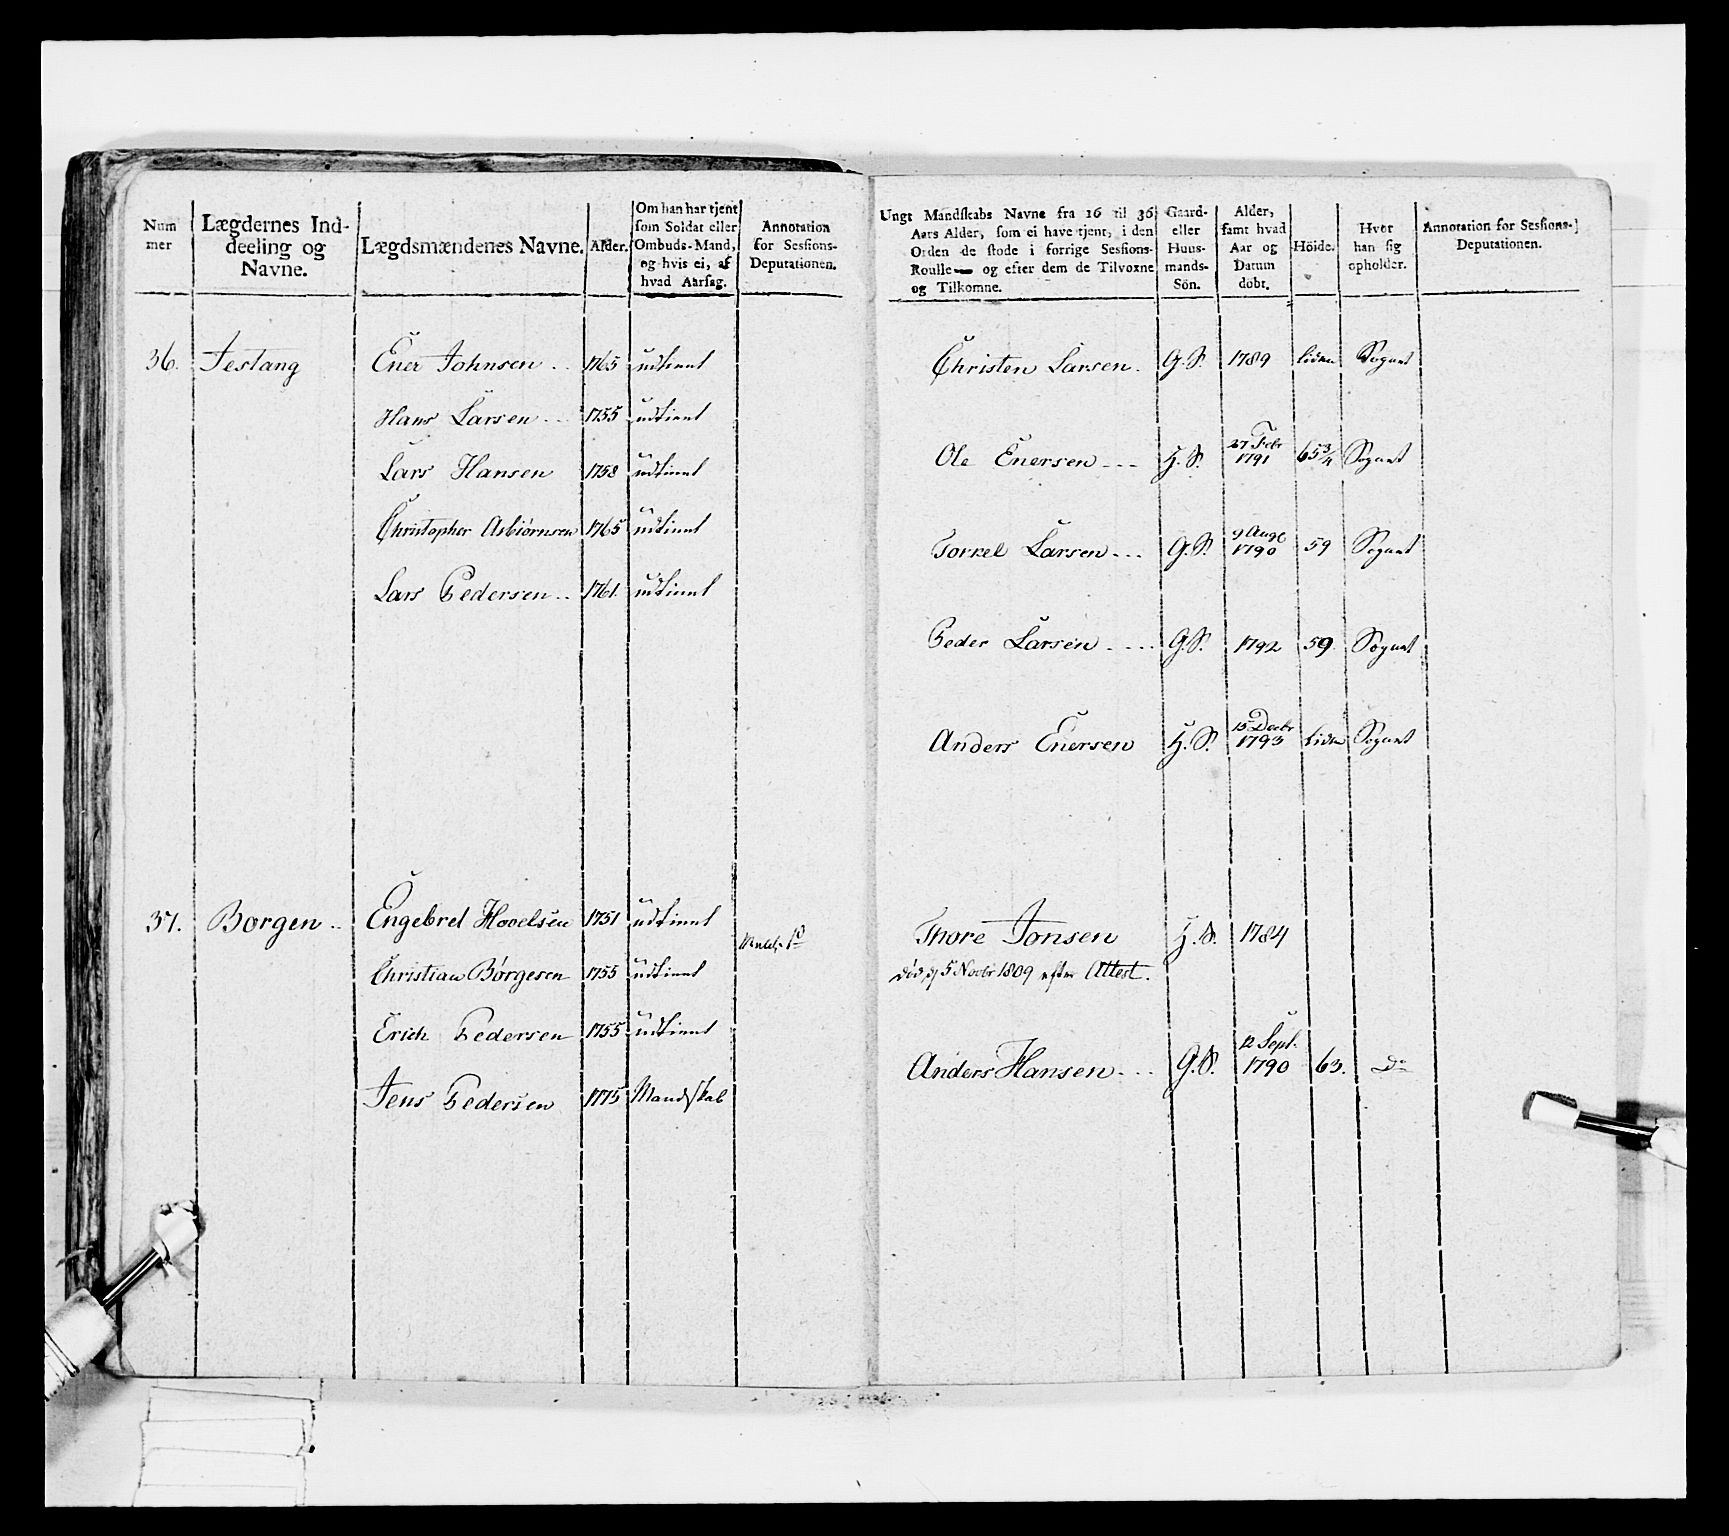 Num
mer
Lægdernes Ind-
deeling og
Navne.
Lægdsmændenes Navne.
Alder.
Om han har tjent
som Soldat eller
Ombuds-Mand,
og hvis ei, af
hvad Aarsag.
Annotation
for Sessions-
Deputationen.
36. Testang Ener Johnsen .. 1765 udtient
Hans Larsen ... 1755 udtient
Lars Hansen 1758 udtient
Christopher Asbiørnsen 1765 udtient
Lars Pedersen .. 1761. udtient
37. Borgen .. Engebret Hovelsen 1751 udtient
Christian Børgesen 1755 udtient
Erich Pedersen 1755 udtient
Jens Pedersen 1775 Mandskab
Ungt Mandskabs Navne fra 16 til 36
Aars Alder, som ei have tjent, i den
Orden de stode i forrige Sessions-
Roulle— og efter dem de Tilvoxne
og Tilkomne.
Gaard-
eller
Huus-
mands-
Sön.
Alder,
samt hvad
Aar og
Datum
döbt.
Höide.
Hvor
han sig
opholder.
Annotation for Sessions-
Deputationen.
Christen Larsen. G.S. 1789 liden Sognet
27 Febr
Ole Enersen --- H.S. 1791 65 3/4 Sognet
9 Augt
Torkel Larsen --- G.S. 1790 59 Sognet
Peder Larsen ---- G.S. 1792 59. Sognet
15 Decbr
Anders Enersen H.S. 1793 liden Sognet
Thore Jonsen H.S. 1784
død d 5 Novbr 1809 efter Attest.
12 Sept.
Anders Hansen --- G.S. 1790 63. Do